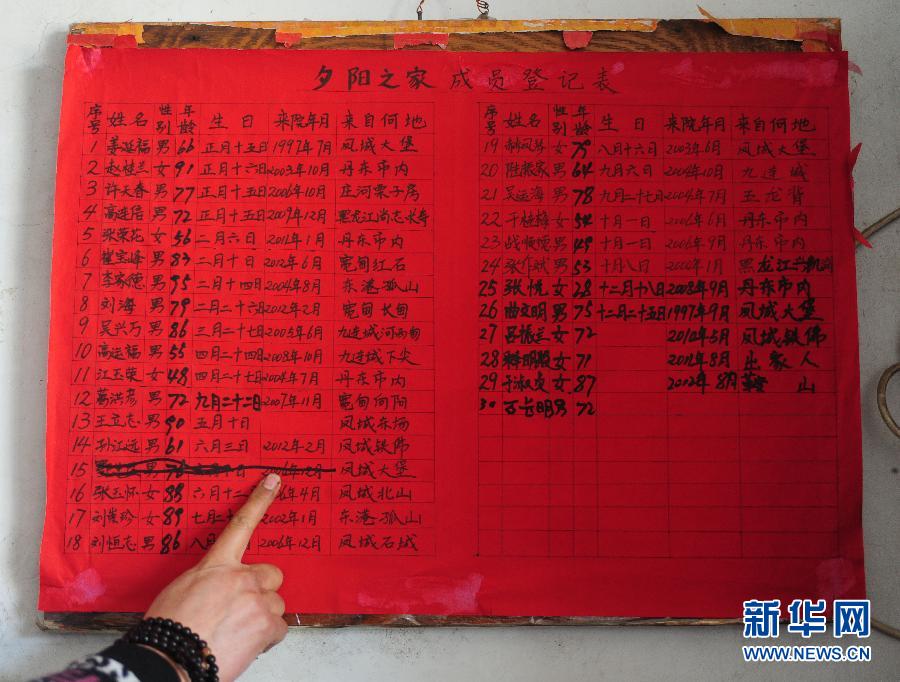 夕阳之家 成员登记表
序号 姓名 性别 年龄 生日 来院年月 来自何地
1 姜延福 男 66 正月十五日 1997年7月 凤城大堡
2 赵桂兰 女 91 正月十六日 2003年10月 丹东市内
3 许天春 男 77 正月十五日 2006年10月 庄河栗子房
4 高连居 男 72 正月十五日 2009年12月 黑龙江尚志
5 张荣花 女 56 二月六日 2011年1月 丹东市内
6 崔宝峰 男 83 二月十日 2012年6月 宽甸红石
7 李家德 男 95 二月十四日 2004年8月 东港孤山
8 刘海 男 79 二月二十六 2012年2月 宽甸长甸
9 吴兴万 男 86 三月二十七日 2005年6月 九连城河西甸
10 高运福 男 55 四月二十四日 2008年10月 九连城下尖
11 江玉荣 女 48 四月二十七日 2004年7月 丹东市内
12 葛洪芳 男 72 九月二十二日 2007年11月 宽甸向阳
13 王立志 男 90 五月十日 凤城东汤
14 孙江远 男 61 六月三日 2012年2月 凤城铁佛
15 男 2006年12月 凤城大堡
16 张玉怀 女 88 六月十二 年4月 凤城北山
17 刘崇珍 女 89 七月二 2002年1月 东港孤山
18 刘恒志 男 86 八月 2006年12月 凤城石城
序号 姓名 性别 年龄 生日 来院年月 来自何地
19 郝凤琴 女 79 八月十六日 2003年6月 凤城大堡
20 滕家 男 64 九月六日 2004年10月 九连城
21 吴运海 男 78 九月二十七日 2004年7月 五龙背
22 于桂梅 女 54 十月一日 2006年6月 丹东市内
23 战顺德 男 49 十月一日 2006年9月 丹东市内
24 张作斌 男 53 十月八日 1月 黑龙江
25 张悦 女 28 十二月十八日 2008年9月 丹东市内
26 曲文明 男 75 十二月二十五日 1997年9月 凤城大堡
27 吕振兰 女 72 2012年5月 凤城铁佛
28 释明殿 女 71 2012年8月 出家人
29 于淑贞 女 87 2012年8月 山
30 万长明 男 72
新华网
WWW.NEWS.CN